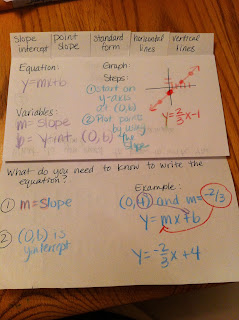 slope intercept
point slope
standard form
horizontal lines
vertical lines
Equation:
y=mx+b
Variables:
m= slope
b= y-int. (0,b)
Graph:
Steps:
① start on
y-axis
at (0,b)
② Plot points
by using
the
slope
y=2/3x-1
What do you need to know to write the
equation?
① m=slope
② (0,b) is
y-intercept
Example:
(0,4) and m=-2/3
y=mx+b
y=-2/3x+4